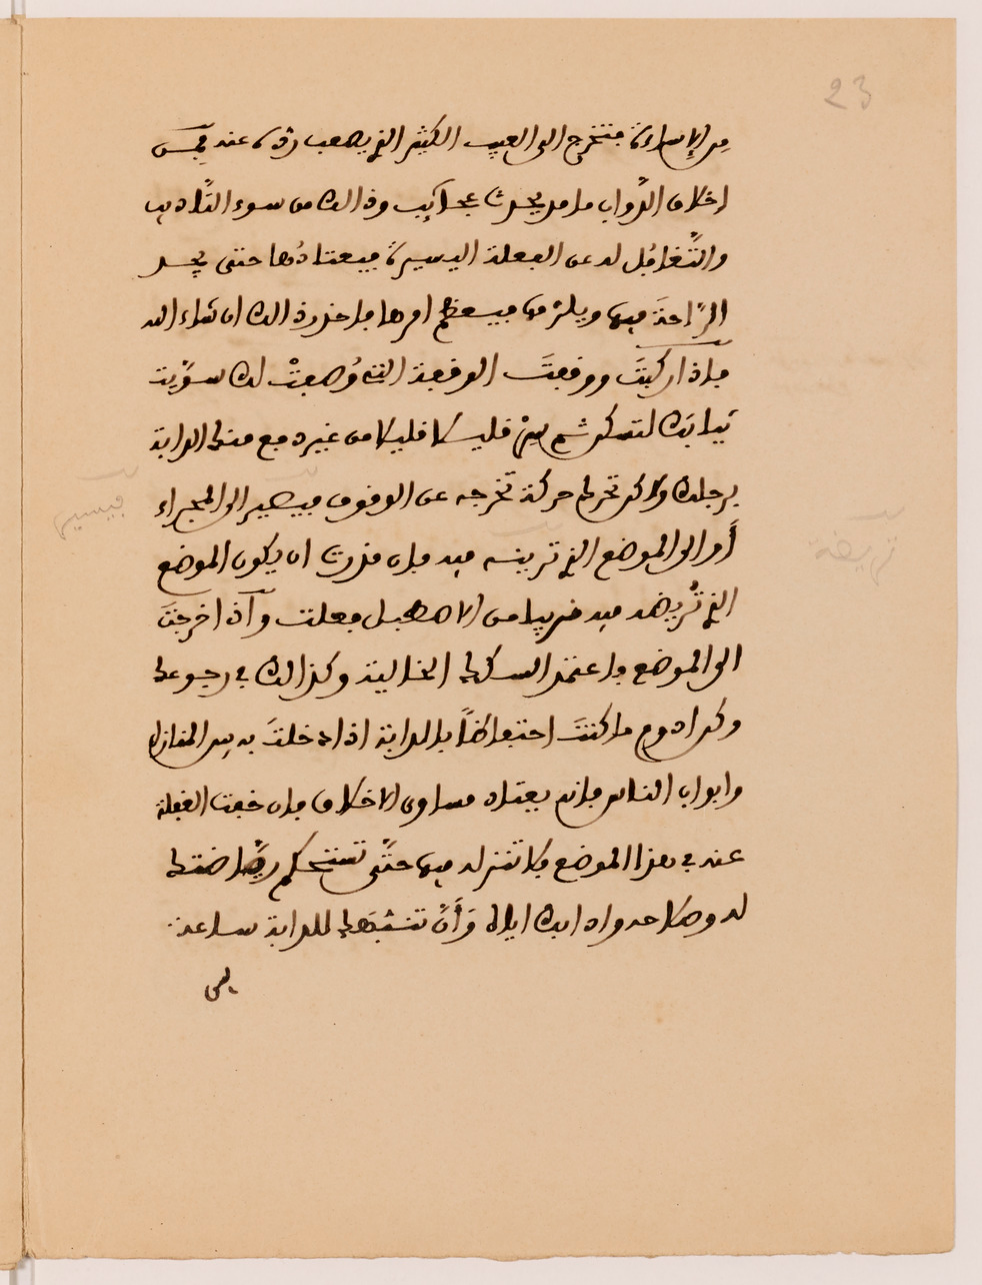 23
من الإساءة فتخرج الى العيب الكثير الذي يصعب رده عنه فمن
اخلاق الدواب ما من يحدث عجايب وذالك من سوء التأديب
والتَّغافُل له عن الفعلة اليسيرة فيعتادُها حتى يجد
الرّاحةَ فيها ويلزمها فيعظم امرها فاحذر ذالك ان شاء الله
فاذا ركبتَ ووقفتَ الوقفة التي وُصفتْ لك سوّيت
ثيابك لتسكن ثم سِرْ قليلا قليلا من غير دفع منك الدابة
برجلك ولاكن تحرك حركة تخرجه عن الوقوف فيصير الى المجراء
أو الى الموضع الذي تريضه فيه فان قدرت ان يكون الموضع
الذي تُريضه فيه قريبا من الاصطبل فعلت وإذا خرجتَ
الى الموضع فاعتمد السكك الخالية وكذالك في رجوعك
وكن ادوم ما كنتَ احتفاظاً بالدابة اذا دخلتَ به بين المنازل
وابواب الناس فانه يعتاد مساوى الاخلاق فان خفت الغفلة
عنه في هذا الموضع فلا تنزله فيها حتَّى تستحكم رياضتك
له وملاعدواه ابدا اياك وَأَنْ تنشبَهك للدابة ساعة
بى
فيسير
تريضه